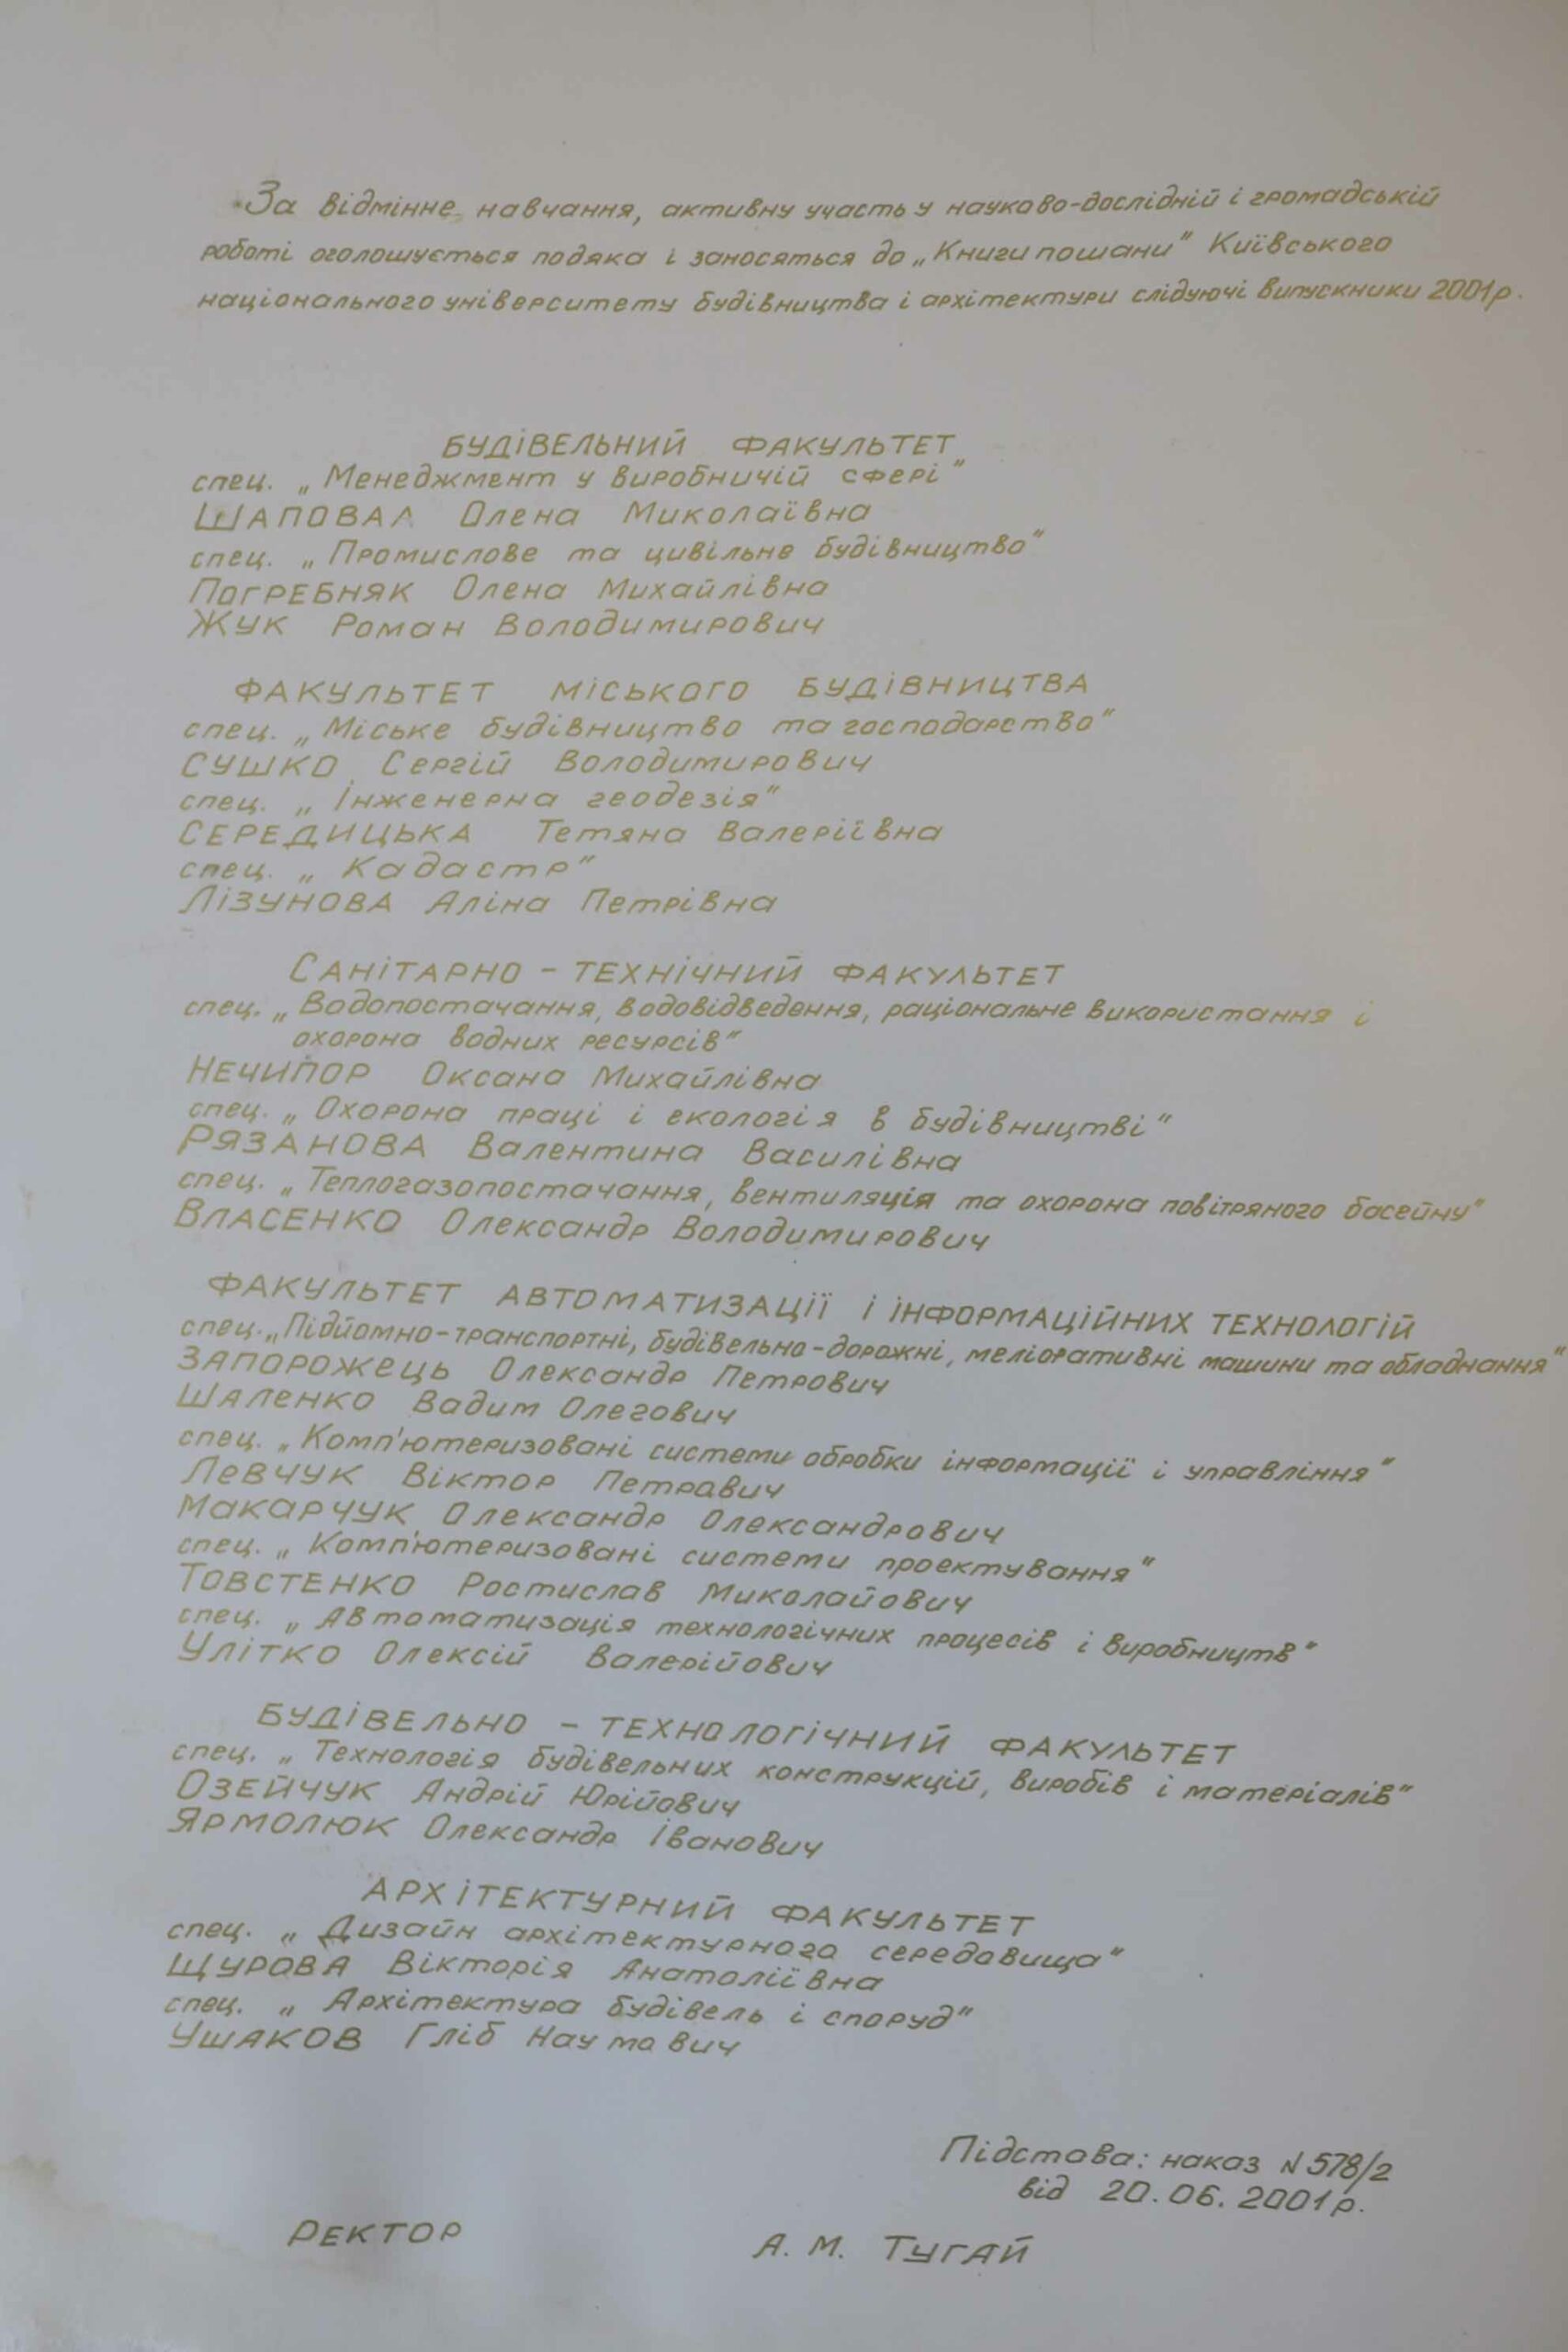 За відмінне навчання, активну участь у науково-дослідній і громадській
роботі оголошується подяка і заносяться до „Книги пошани" Київського
національного університету будівництва і архітектури слідуючі випускники 2001р.
БУДІВЕЛЬНИЙ ФАКУЛЬТЕТ
спец. „Менеджмент у виробничій сфері"
ШАПОВАЛ Олена Миколаївна
спец. „Промислове та цивільне будівництво"
ПОГРЕБНЯК Олена Михайлівна
ЖУК Роман Володимирович
ФАКУЛЬТЕТ МІСЬКОГО БУДІВНИЦТВА
спец. „Міське будівництво та господарство"
СУШКО Сергій Володимирович
спец. „Інженерна геодезія"
СЕРЕДИЦЬКА Тетяна Валеріївна
спец. „Кадастр"
ЛІЗУНОВА Аліна Петрівна
САНІТАРНО - ТЕХНІЧНИЙ ФАКУЛЬТЕТ
спец. „Водопостачання, водовідведення, раціональне використання і
охорона водних ресурсів"
НЕЧИПОР Оксана Михайлівна
спец. „Охорона праці і екологія в будівництві"
РЯЗАНОВА Валентина Василівна
спец. „Теплогазопостачання, вентиляція та охорона повітряного басейну"
ВЛАСЕНКО Олександр Володимирович
ФАКУЛЬТЕТ АВТОМАТИЗАЦІЇ І ІНФОРМАЦІЙНИХ ТЕХНОЛОГІЙ
спец. „Підйомно-транспортні, будівельно-дорожні, меліоративні машини та обладнання"
ЗАПОРОЖЕЦЬ Олександр Петрович
ШАЛЕНКО Вадим Олегович
спец. „Комп'ютеризовані системи обробки інформації і управління"
ЛЕВЧУК Віктор Петрович
МАКАРЧУК Олександр Олександрович
спец. „Комп'ютеризовані системи проектування"
ТОВСТЕНКО Ростислав Миколайович
спец. „Автоматизація технологічних процесів і виробництв"
УЛІТКО Олексій Валерійович
БУДІВЕЛЬНО - ТЕХНОЛОГІЧНИЙ ФАКУЛЬТЕТ
спец. „Технологія будівельних конструкцій, виробів і матеріалів"
ОЗЕЙЧУК Андрій Юрійович
ЯРМОЛЮК Олександр Іванович
АРХІТЕКТУРНИЙ ФАКУЛЬТЕТ
спец. „Дизайн архітектурного середовища"
ЩУРОВА Вікторія Анатоліївна
спец. „Архітектура будівель і споруд"
УШАКОВ Гліб Наумович
Підстава: наказ N 578/2
від 20.06.2001р.
РЕКТОР А. М. ТУГАЙ